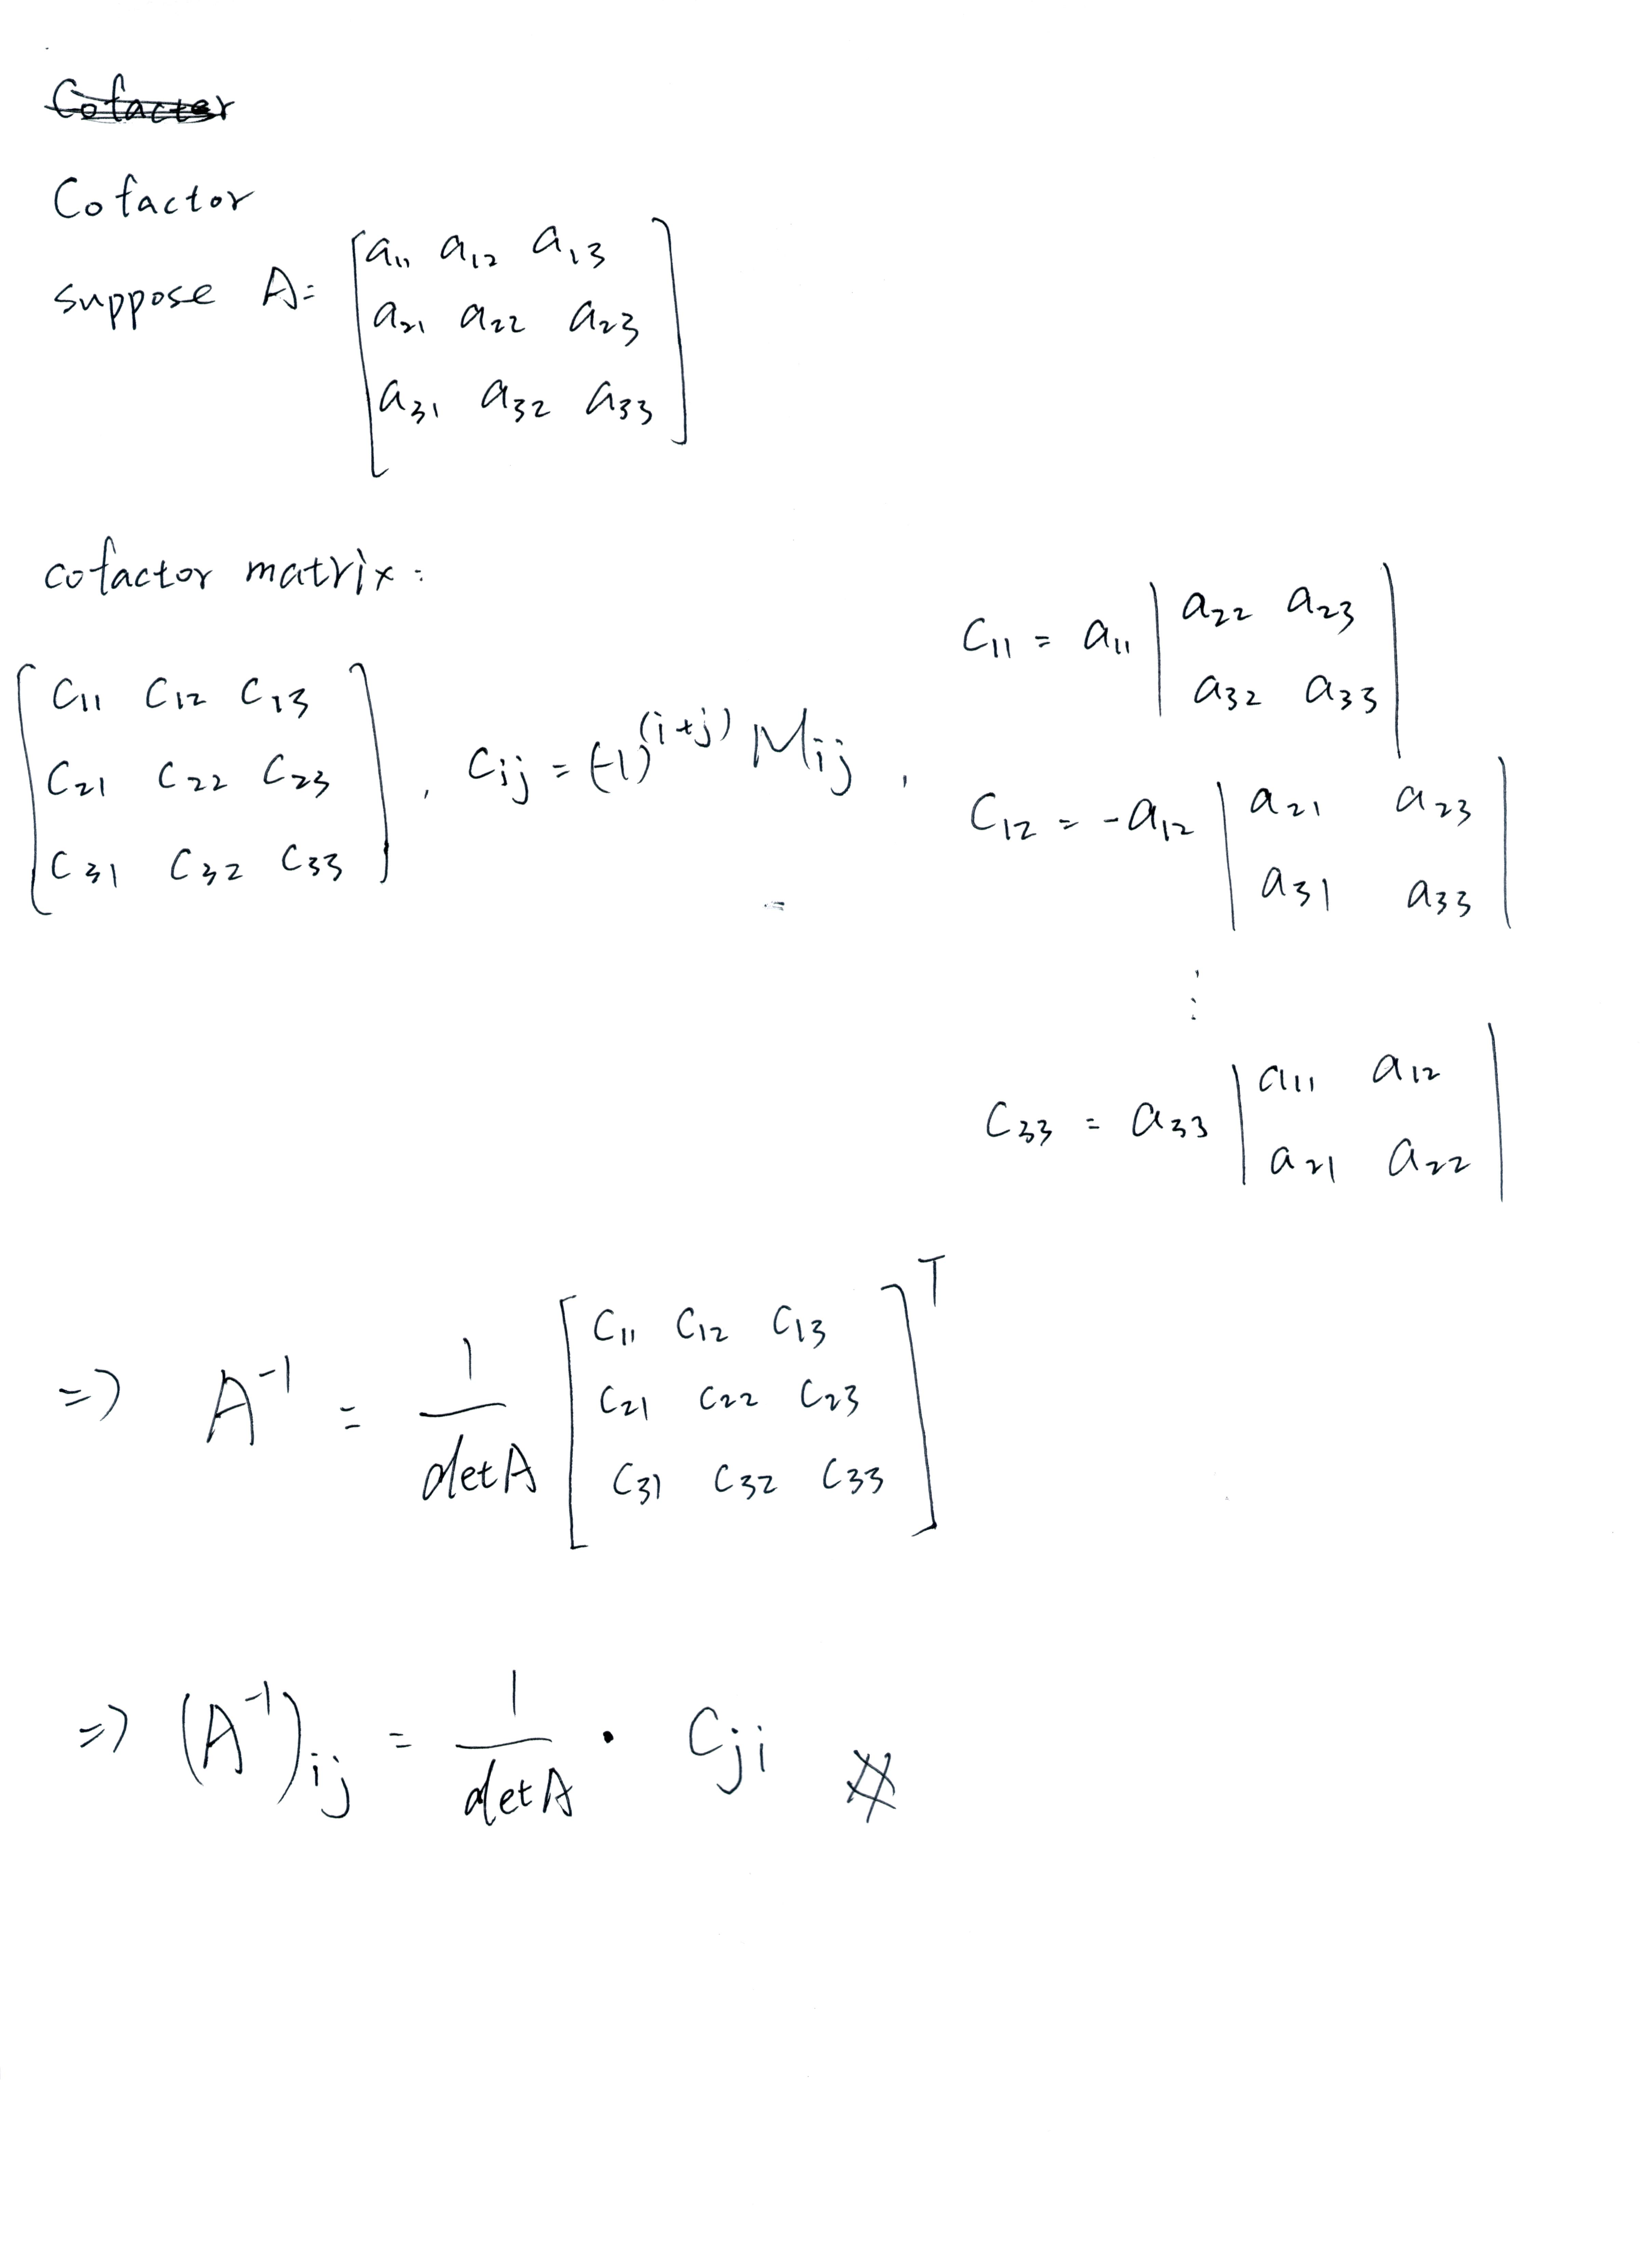 Cofactor
suppose A = [a11 a12 a13
a21 a22 a23
a31 a32 a33]
cofactor matrix:
[C11 C12 C13
C21 C22 C23
C31 C32 C33], Cij = (-1)^(i+j) Mij,
C11 = a11 |a22 a23
a32 a33|
C12 = -a12 |a21 a23
a31 a33|
⋮
C33 = a33 |a11 a12
a21 a22|
=> A^-1 = 1/detA [C11 C12 C13
C21 C22 C23
C31 C32 C33]^T
=> (A^-1)ij = 1/detA · Cji #